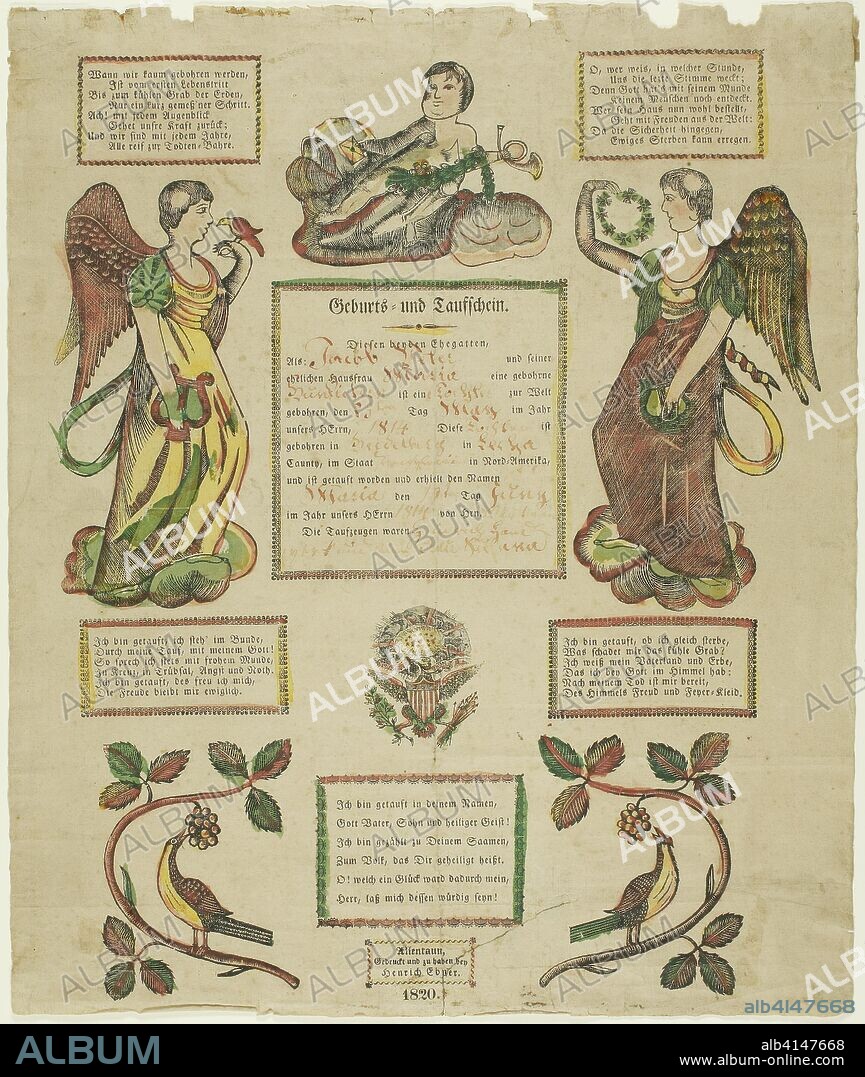 Wann wir kaum gebohren werden,
Ist vom ersten Lebenstritt
Bis zum kühlen Grab der Erden,
Nur ein kurz gemeß'ner Schritt.
Ach! mit jedem Augenblick
Gehet unsre Kraft zurück;
Und wir sind mit jedem Jahre,
Alle reif zur Todten-Bahre.
O, wer weis, in welcher Stunde,
Uns die letzte Stimme weckt;
Denn Gott hat's mit seinem Munde
Keinem Menschen noch entdeckt.
Wer sein Haus nun wohl bestellt,
Geht mit Freuden aus der Welt;
Da die Sicherheit hingegen,
Ewiges Sterben kann erregen.
Geburts- und Taufschein.
Diesen beyden Ehegatten,
Als: Jacob und seiner
ehelichen Hausfrau Maria eine gebohrne
ist ein zur Welt
gebohren, den Tag May im Jahr
unsers HErrn, 1814 Diese ist
gebohren in in
County, im Staat in Nord-Amerika,
und ist getauft worden und erhielt den Namen
Maria den Tag Juny
im Jahr unsers HErrn 1814 von Hrn.
Die Taufzeugen waren
Ich bin getauft, ich steh' im Bunde,
Durch meine Tauf, mit meinem Gott!
So sprech ich stets mit frohem Munde,
In Kreuz, in Trübsal, Angst und Noth.
Ich bin getauft, des freu ich mich,
Die Freude bleibt mir ewiglich.
Ich bin getauft, ob ich gleich sterbe,
Was schadet mir das kühle Grab?
Ich weiß mein Vaterland und Erbe,
Das ich bey Gott im Himmel hab:
Nach meinem Tod ist mir bereit,
Des Himmels Freud und Feyer-Kleid.
Ich bin getauft in deinem Namen,
Gott Vater, Sohn und heiliger Geist!
Ich bin gezählt zu Deinem Saamen,
Zum Volk, das Dir geheiligt heißt.
O! welch ein Glück ward dadurch mein,
Herr, laß mich dessen würdig seyn!
Allentaun,
Gedruckt und zu haben bey
Henrich Ebner.
1820.
alb4147668
ALBUM
alb4147668
www.album-online.com